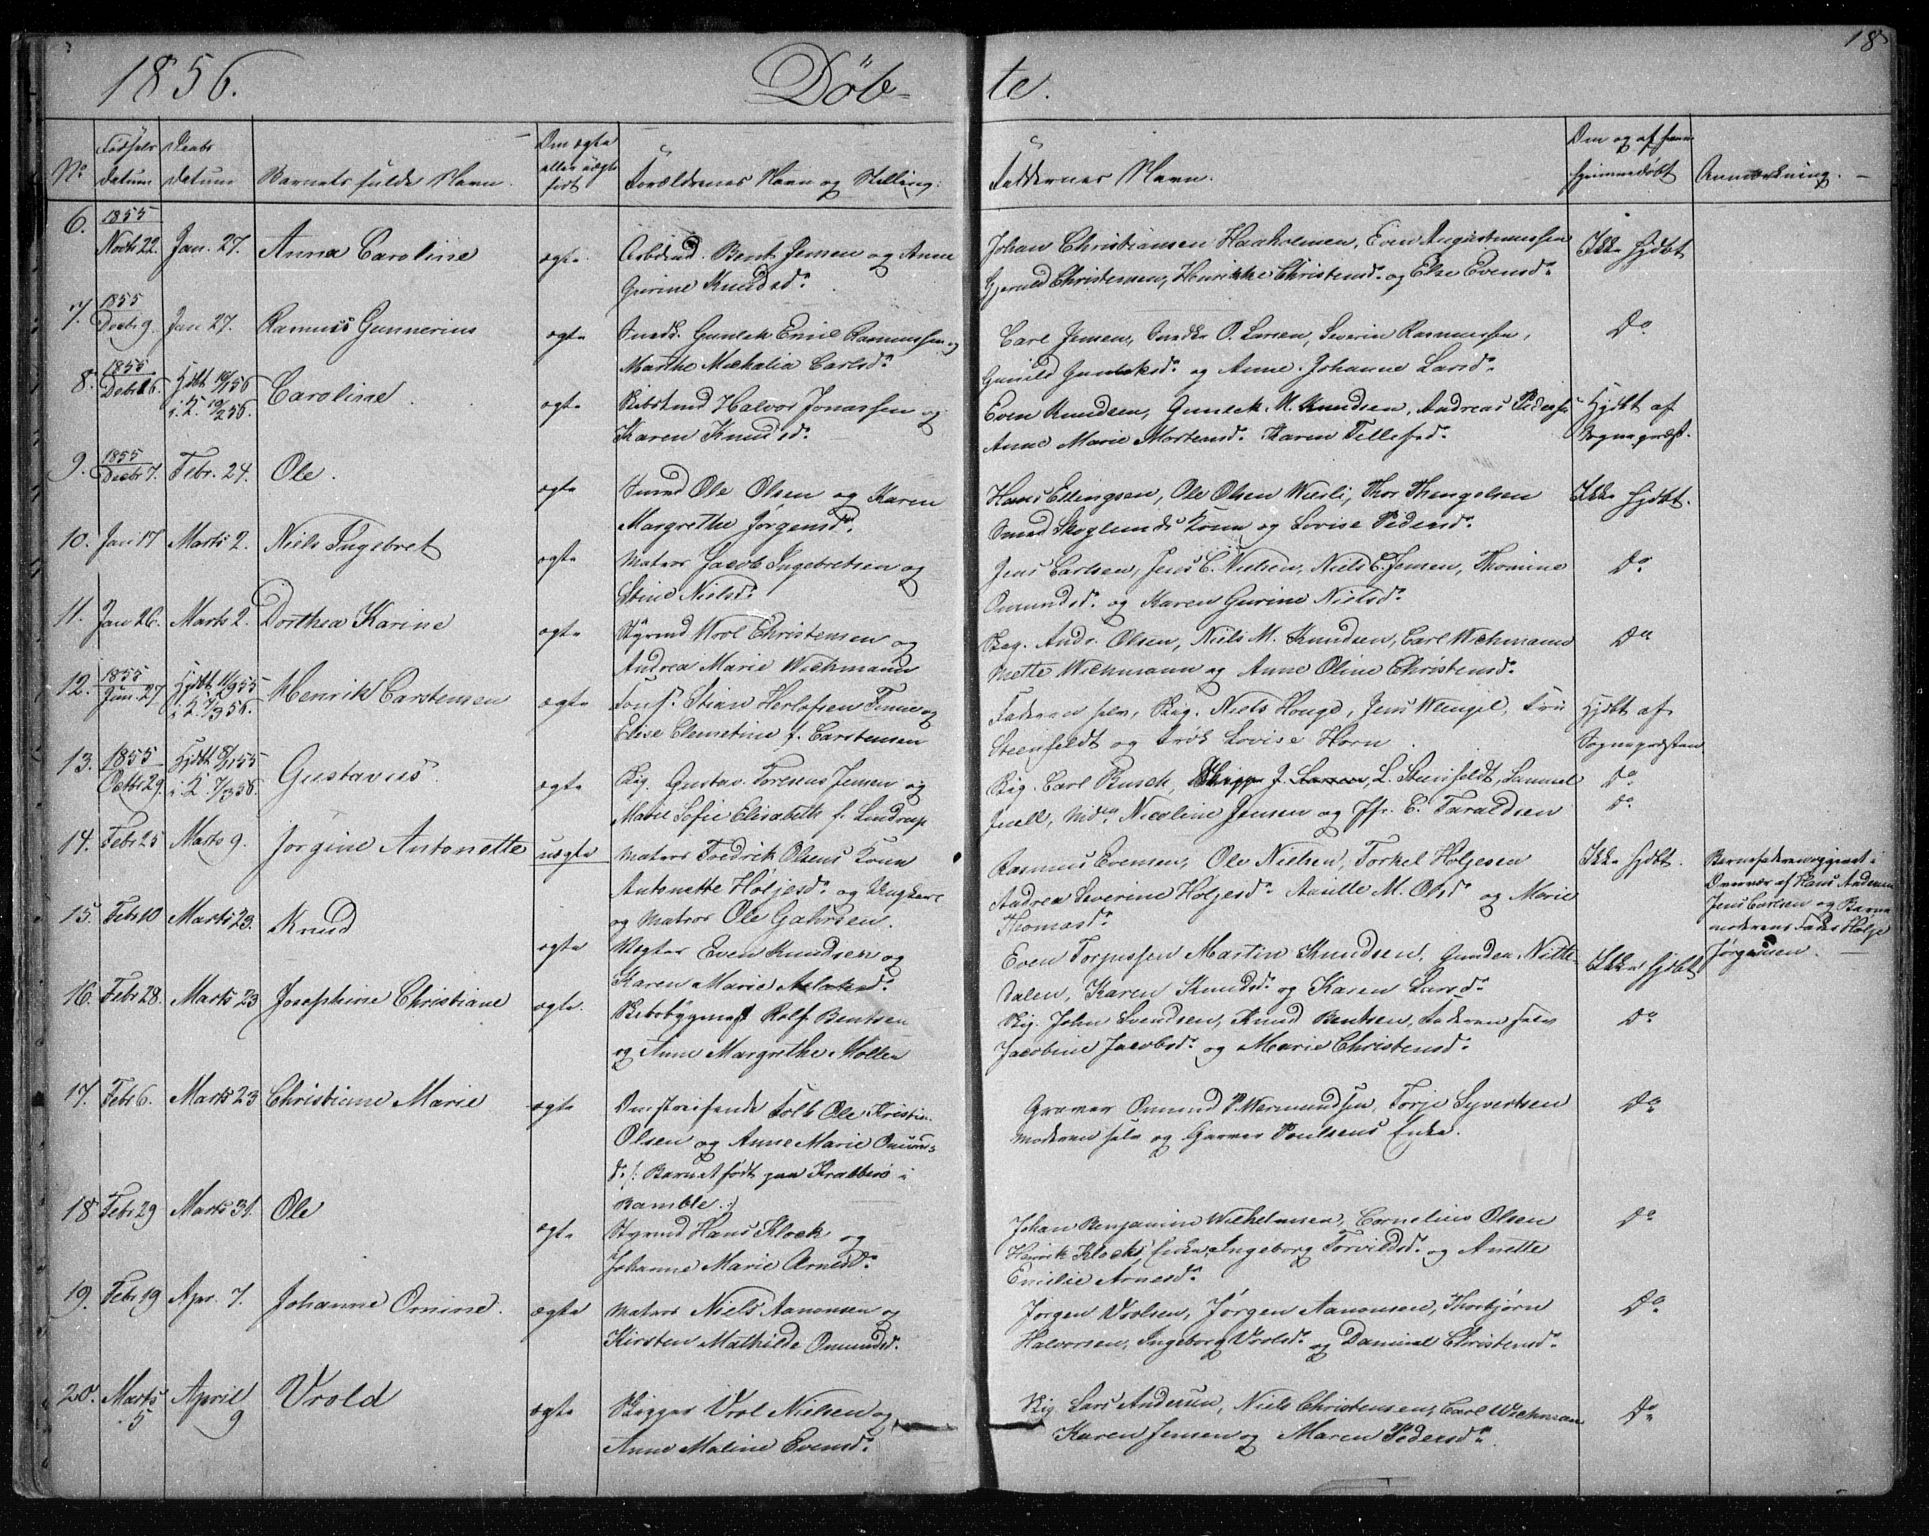 1856. Døb-
te.
18
No
Fødsels
datum
Daabs
datum
Barnets fulde Navn.
Om ægte
eller uægte
født
Forældrenes Navn og Stilling.
Faddernes Navn.
Om og af hvem
hjemmedøbt
Anmærkning.
6. 1855
Novb 22. Jan. 27. Anna Caroline ægte. Arbdmd. Bent Jensen og Anne
Gurine Knudsd.
Johan Christiansen Haaholmen, Even Augustinussen
Gjeruld Christensen, Henrikke Christensd. og Else Evensd.
Ikke hjdbt
7. 1855
Decbr 9. Jan 27. Rasmus Gunnerius ægte Gunlek Emil Rasmussen og
Marthe Michalia Carlsd.
Carl Jensen, O. Larsen, Severin Rasmussen,
Gunild Gunleksd. og Anne Johanne Larsd.
Do
8. 1855
Debr 16. Hjdbt 16/1 56
i K. 10/2 56. Caroline. ægte Halvor Jonassen og
Karen Knudsd.
Even Knudsen, Gunlek K. Knudsen, Andreas Pedersen
Anne Marie Mortensd. Karen Tellefsd.
Hjdbt af
Sognepræst.
9. 1855
Decbr 7. Febr. 24. Ole. ægte Ole Olsen og Karen
Margrethe Jørgensd.
Hans Ellingsen, Ole Olsen Werli, Thor Thengelsen
Skoglunds Kone og Lovise Pedersd.
Ikke hjdbt.
10. Jan 17 Marts 2. Niels Ingebret ægte Matros Jacob Ingebretsen og
Stine Nielsd.
Jens Carlsen, Jens C. Nielsen, Niels C. Jensen, Thomine
Omundsd. og Karen Gurine Nielsd.
Do
11. Jan 26. Marts 2. Dorthea Karine ægte Styrmd Wrol Christensen og
Andrea Marie Wichmann
Skg. Andr. Olsen, Niels M. Knudsen, Carl Wichmann
Mette Wichmann og Anne Oline Christensd.
Do
12. 1855
Jun. 27 Hjdbt 11/9 55
i K. 7/3 56. Henrik Carstensen ægte Stian Herlofsen Finne og
Elise Clemetine f. Carstensen
Faderen selv, Skg. Niels Houge, Jens Wengel, Fru
Steenfeldt og Lovise Horn.
Hjdbt af
Sognepræsten
13. 1855
Octbr 29. Hjdbt 8/11 55
i K. 7/3 56. Gustavus. ægte Skg. Gustav Foresius Jensen og
Marie Sofie Elisabeth f. Lindrup
Skg. Carl Busch, J. Larsen, L. Steenfeldt, Samuel
Juell, Md. Nicoline Jensen og Jfr. E. Taraldsen
Do
Do
14. Febr 25 Marts 9. Jørgine Antonette uægte Matros Fredrik Olsens Kone
Antonette Holjesd. og Ungkarl
og Matros Ole Gahrsen.
Rasmus Evensen, Ole Nielsen, Torkel Holjesen
Andrea Severine Holjesd. Aanille M. Olsd. og Marie
Thomasd.
Ikke hjdbt.
Barnefaderen opgivet i
Overvær af Hans Andersen
Jens Carlsen og Barne
moderens Fader Holje
Jørgensen.
15. Febr 10 Marts 23. Knud ægte Vægter Even Knudsen og
Karen Marie Aslaksd.
Even Torjussen, Martin Knudsen, Gunder Nitte-
dalen, Karen Knudsd. og Karen Larsd.
Ikke hjdbt
16. Febr 28. Marts 23 Josephine Christiane ægte. Skibsbygmest Rolf Bentsen
og Anne Margrethe Møller
Skg. John Svendsen, Knud Bentsen, Faderen selv
Jacobine Jacobsd. og Marie Christensd.
Do
17. Febr 6. Marts 23 Christiane Marie ægte Omstreifende Folk Ole Kristin
Olsen og Anne Marie Omun-
d. /: Barnet født paa Krabberø i
Bamble :/
Graver Omund P. Wermundsen, Torje Syvertsen
Moderen selv og Garver Poulsens Enke.
Do
18 Febr 29 Marts 31. Ole ægte Styrmd Hans Klock og
Johanne Marie Arnesd.
Johan Benjamin Wilhelmsen, Cornelius Olsen
Henrik Klocks Enke, Ingeborg Torvildsd. og Anette
Emilie Arnesd.
Do
19. Febr 19 Apr. 7. Johanne Omine. ægte Matros Niels Aanonsen og
Kirsten Mathilde Omundsd.
Jørgen Vrolsen, Jørgen Aanonsen, Thorbjørn
Halvorsen, Ingeborg Vrolsd. og Daminal Christensd.
Do
20. Marts
5 April
9 Vrold ægte Skipper Vrol Nielsen og
Anne Maline Evensd.
Skg. Lars Andersen, Niels Christensen, Carl Wichmann
Karen Jensen og Maren Pedersd.
Do